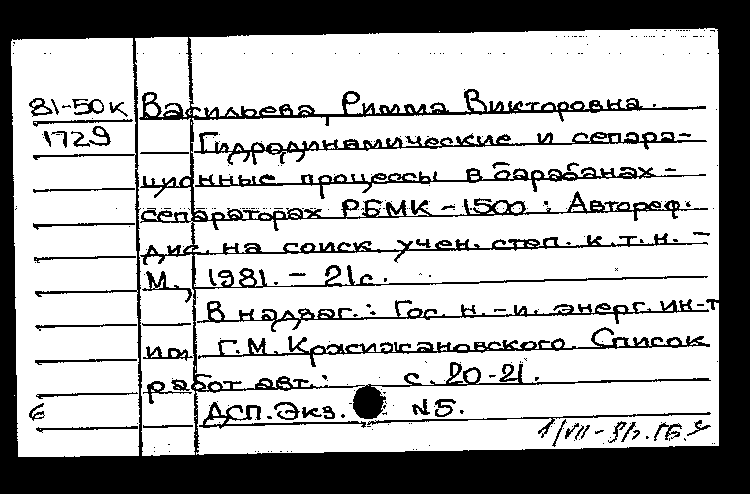 81-50к Васильева, Римма Викторовна.
1729 Гидродинамические и сепара-
ционные процессы в барабанах-
сепараторах РБМК-1500: Автореф.
дис. на соиск. учен. степ. к.т.н. -
М., 1981. - 21с.
В надзаг.: Гос. н.-и. энерг. ин-т
им. Г.М. Кржижановского. Список
работ авт.: с. 20-21.
6 ДСП. Экз. N5.